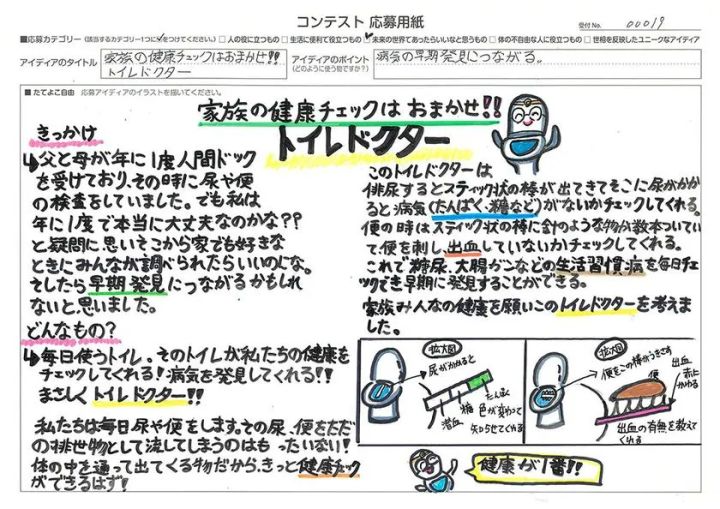 コンテスト 応募用紙
受付No. 00019
■応募カテゴリー(該当するカテゴリー1つに✓をつけてください。) □人の役に立つもの □生活に便利で役立つもの ☑未来の世界であったらいいなと思うもの □体の不自由な人に役立つもの □世相を反映したユニークなアイディア
アイディアのタイトル
家族の健康チェックはおまかせ!!
トイレドクター
アイディアのポイント
(どのように使う物ですか?)
病気の早期発見につながる。
■たてよこ自由 応募アイディアのイラストを描いてください。
家族の健康チェックはおまかせ!!
トイレドクター
きっかけ
↳父と母が年に1度人間ドック
を受けており、その時に尿や便
の検査をしていました。でも私は
年に1度で本当に大丈夫なのかな??
と疑問に思いそこから家でも好きな
ときにみんなが調べられたらいいのにな。
そしたら早期発見につながるかもしれ
ないと思いました。
どんなもの?
↳毎日使うトイレ。そのトイレが私たちの健康を
チェックしてくれる!病気を発見してくれる!!
まさしくトイレドクター!!
私たちは毎日尿や便をします。その尿、便をただ
の排世物として流してしまうのはもったいない!
体の中を通って出てくる物だから、きっと健康チェック
ができるはず!
このトイレドクターは
俳尿するとスティック状の棒が出てきてそこに尿がかか
ると病気(たんぱく、糖など)がないかチェックしてくれる。
便の時はスティック状の棒に針のような物が数本ついてい
て便を刺し、出血していないかチェックしてくれる。
これで糖尿、大腸ガンなどの生活習慣病を毎日チェ
ックでき早期に発見することができる。
家族みんなの健康を願いこのトイレドクターを考えま
した。
拡大図
尿がかかると
たんぱく
糖
潜血
色が変わって
知らせてくれる
拡大図
便をこの棒がつきさす
便
出血
赤に
かわる
出血の有無を教えて
くれる
健康が1番!!